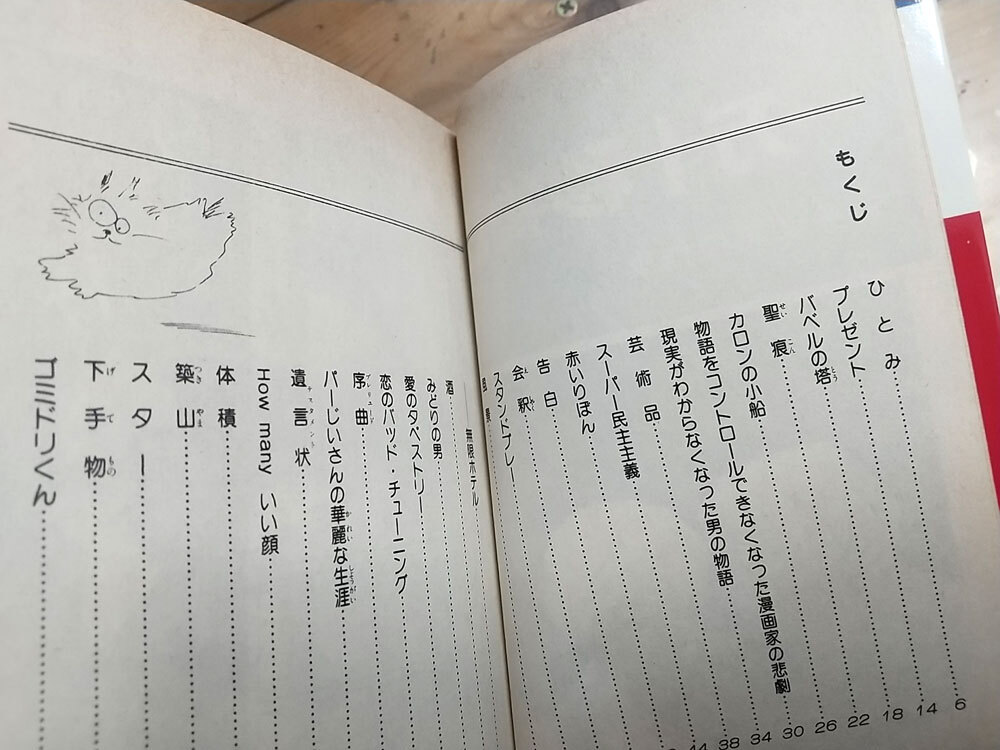 もくじ
ひとみ 6
プレゼント 14
バベルの塔 とう 18
聖痕 せいこん 22
カロンの小船 26
物語をコントロールできなくなった漫画家の悲劇 30
現実がわからなくなった男の物語 34
芸術品 38
スーパー民主主義 44
赤いりぼん
告白
会釈 えしゃく
スタンドプレー
風景
——無限ホテル
酒
みどりの男
愛のタペストリー
恋のバッド・チューニング
序曲 プレリュード
バーじいさんの華麗な生涯 かれい しょうがい
遺言状 テスタメント
How many いい顔
体積
築山 つきやま
スター
下手物 げてもの
ゴミドリくん